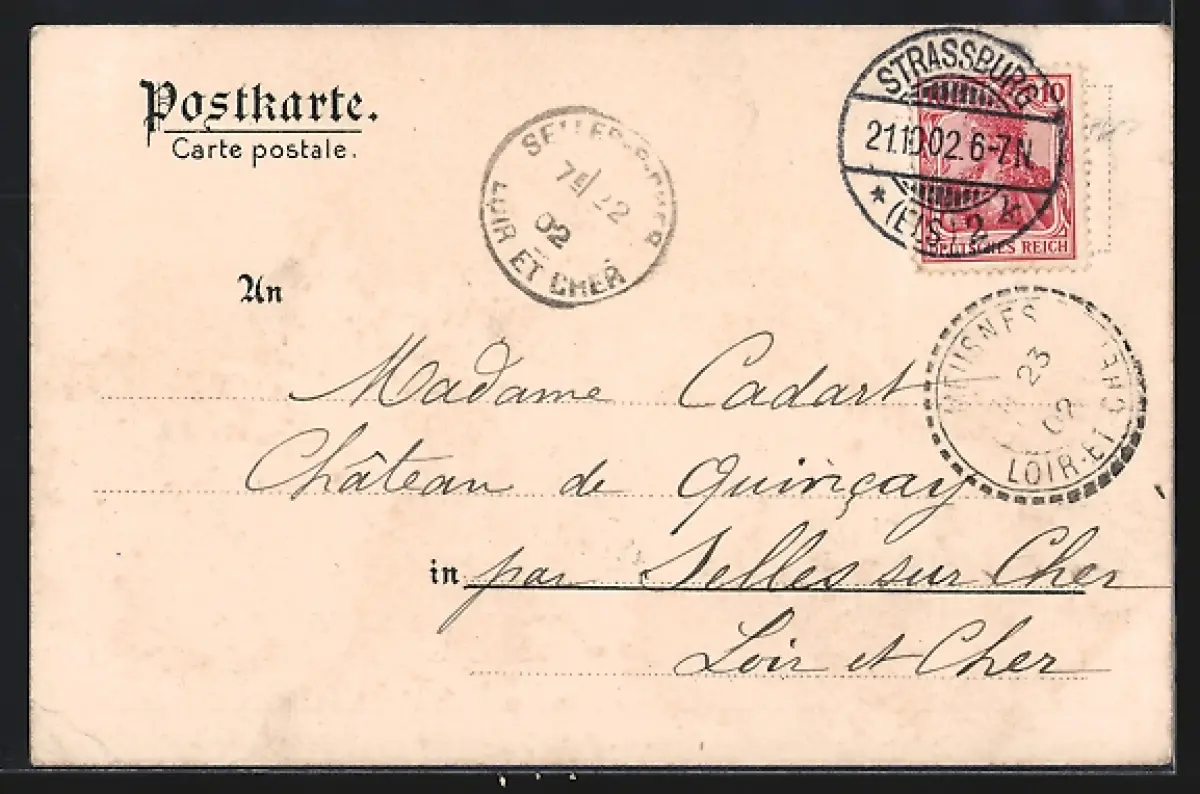 Postkarte.
Carte postale.
STRASSBURG
21.10.02. 6-7N.
* (ELS.) 2 k
10
DEUTSCHES REICH
SELLES-S-CHER
02
LOIR ET CHER
MEUSNES
23
02
LOIR-ET-CHER
An
Madame Cadart
Château de Quinçay
in par Selles sur Cher
Loir et Cher